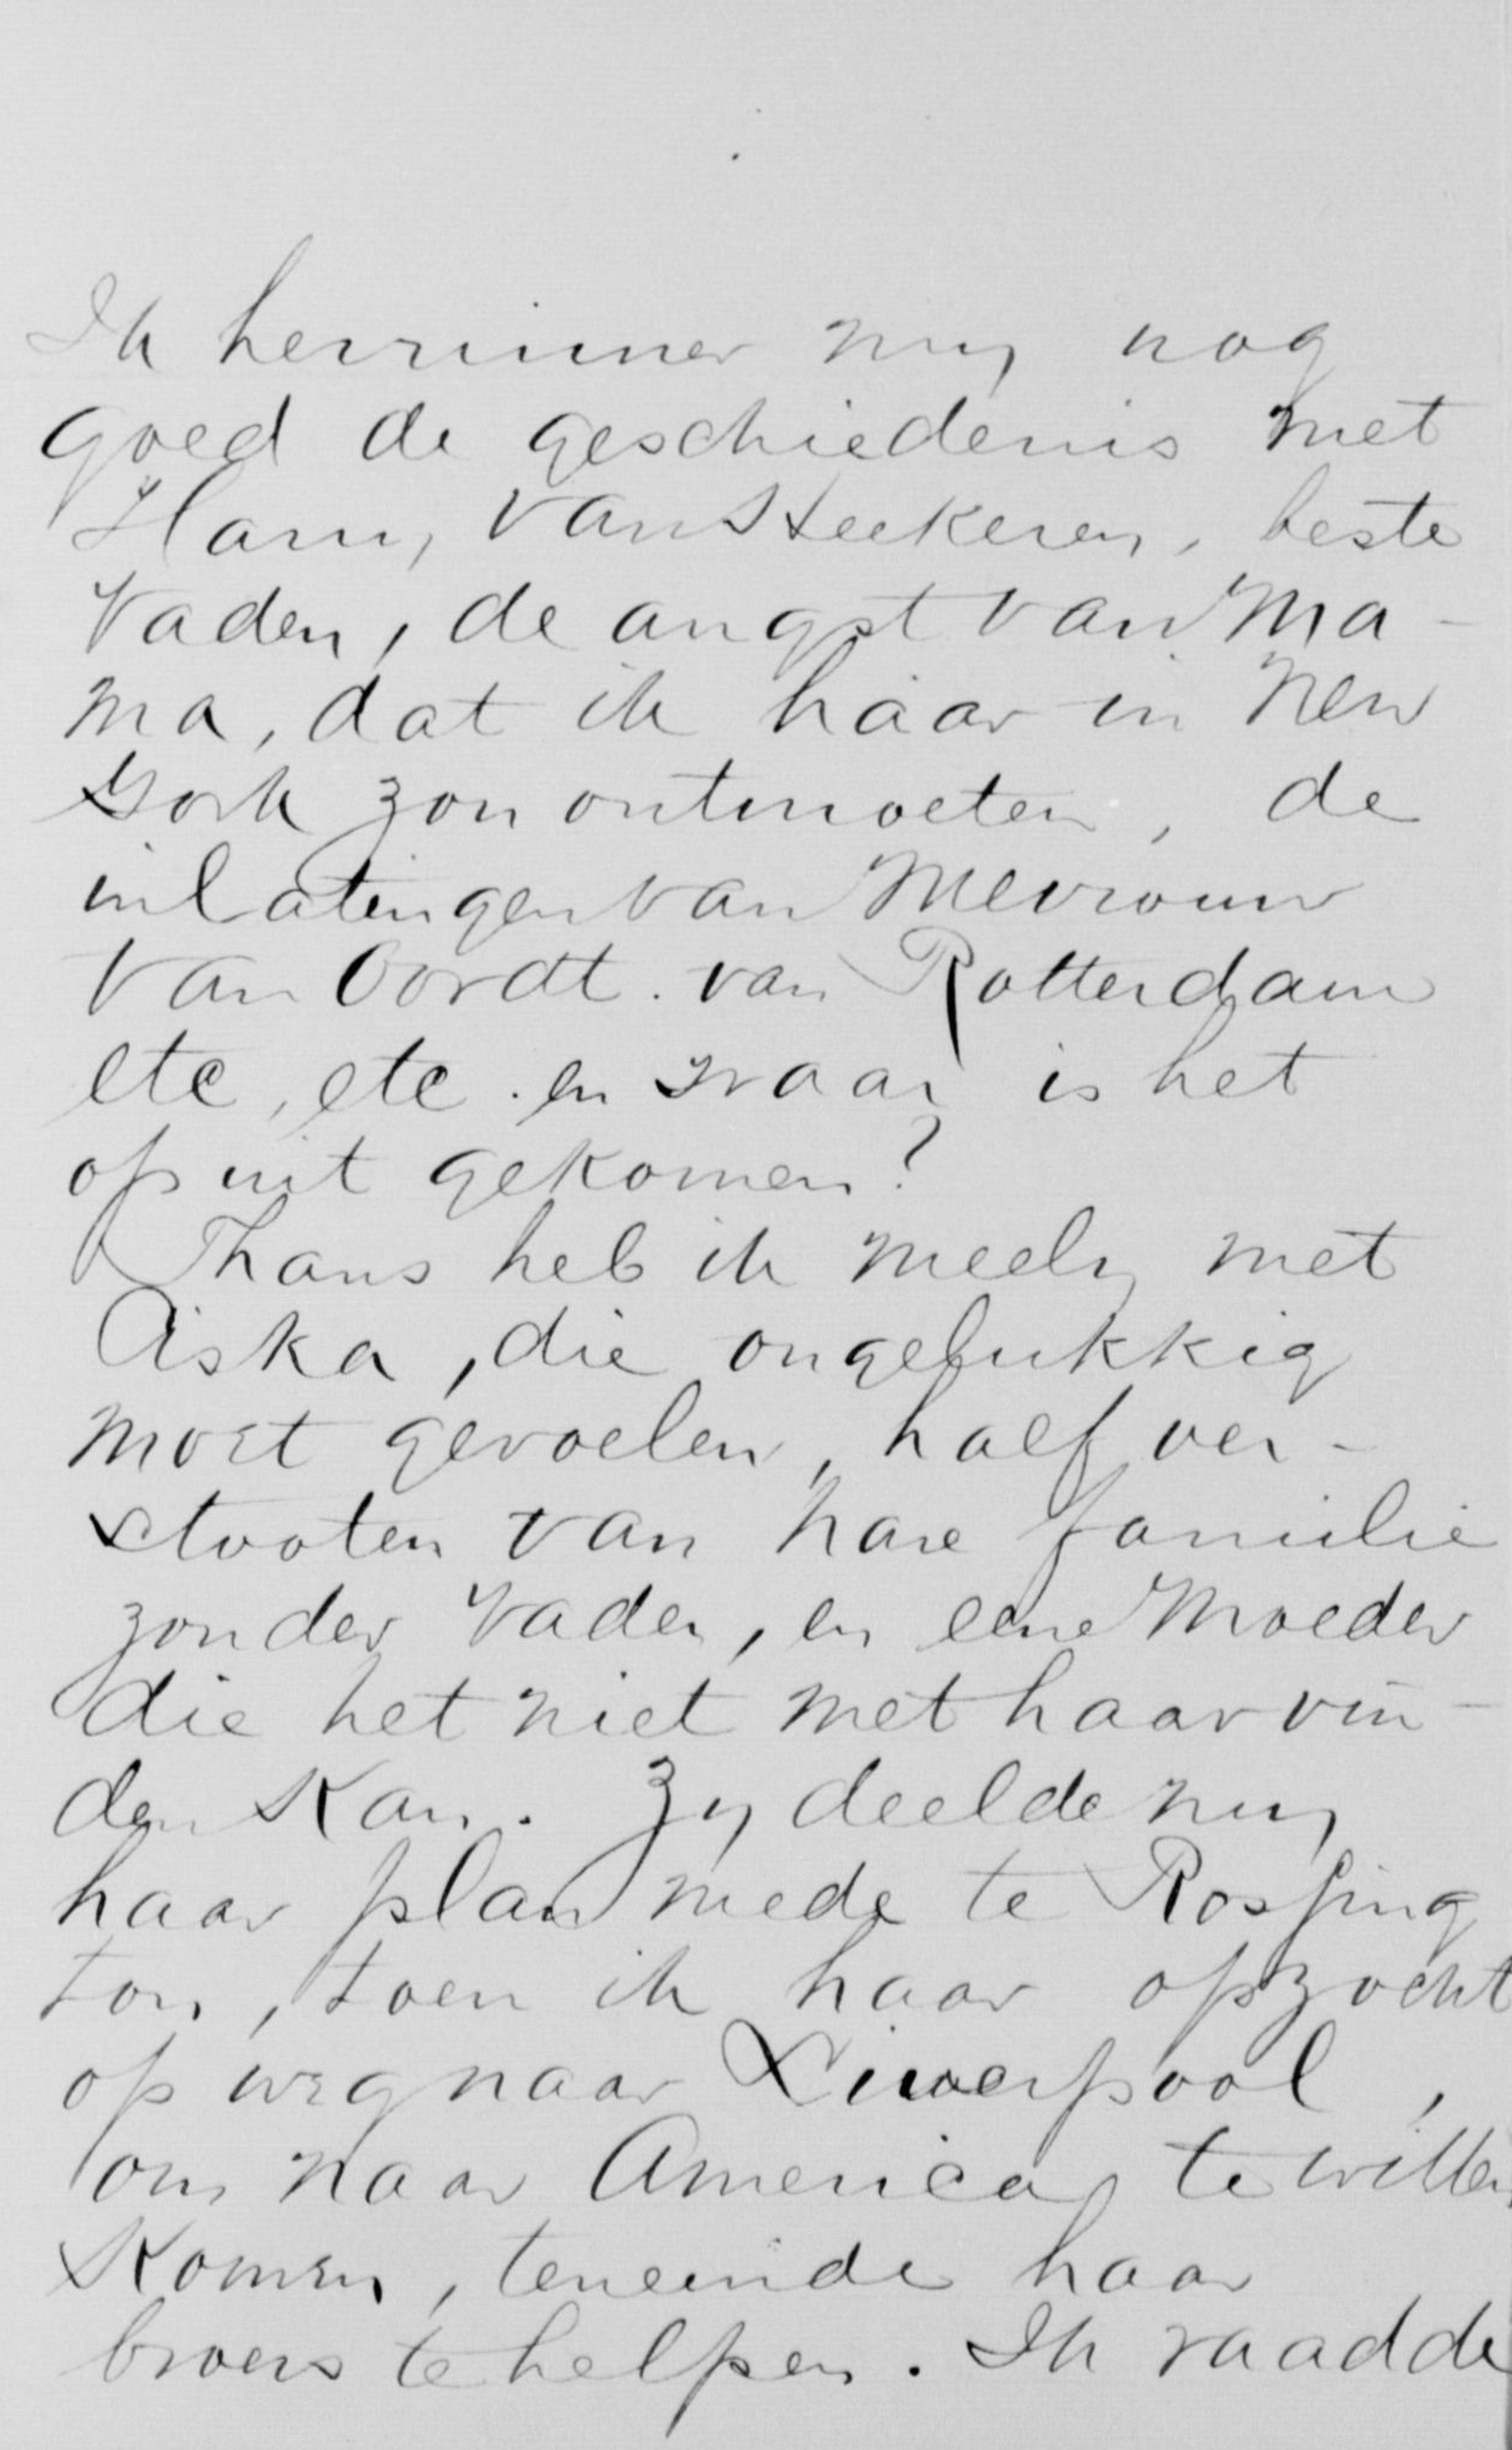 Ik herrinner my nog
goed de geschiedenis met
Harry van Heekeren, beste
Vader, de angst van Ma-
ma, dat ik haar in New
York zou ontmoeten, de
inlatingen van Mevrouw
van Oordt. van Rotterdam
etc, etc. en waar is het
op uit gekomen?
Thans heb ik meely met
Ciska, die ongelukkig
moet gevoelen, half ver-
stooten van hare familie
zonder Vader, en eene Moeder
die het niet met haar vin-
den kan. Zy deelde my
haar plan mede te Rossing
ton, toen ik haar opzocht
op weg naar Liwerpool,
om naar America te willen
komen, teneinde haar
broers te helpen. Ik raadde